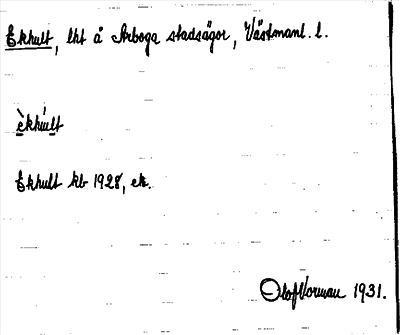 Ekhult, lht å Arboga stadsägor, Västmanl. l.
èkhúlt
Ekhult kb 1928, ek.
Olof Norman 1931.